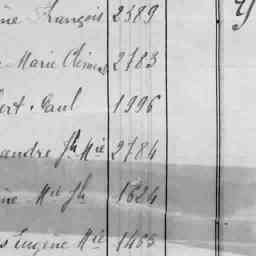 ne François 2389
Marie Clémen 2783
ert Paul 1996
andre Jh Mie 2784
ne Mie Jh 1624
s Eugène Mie 1465